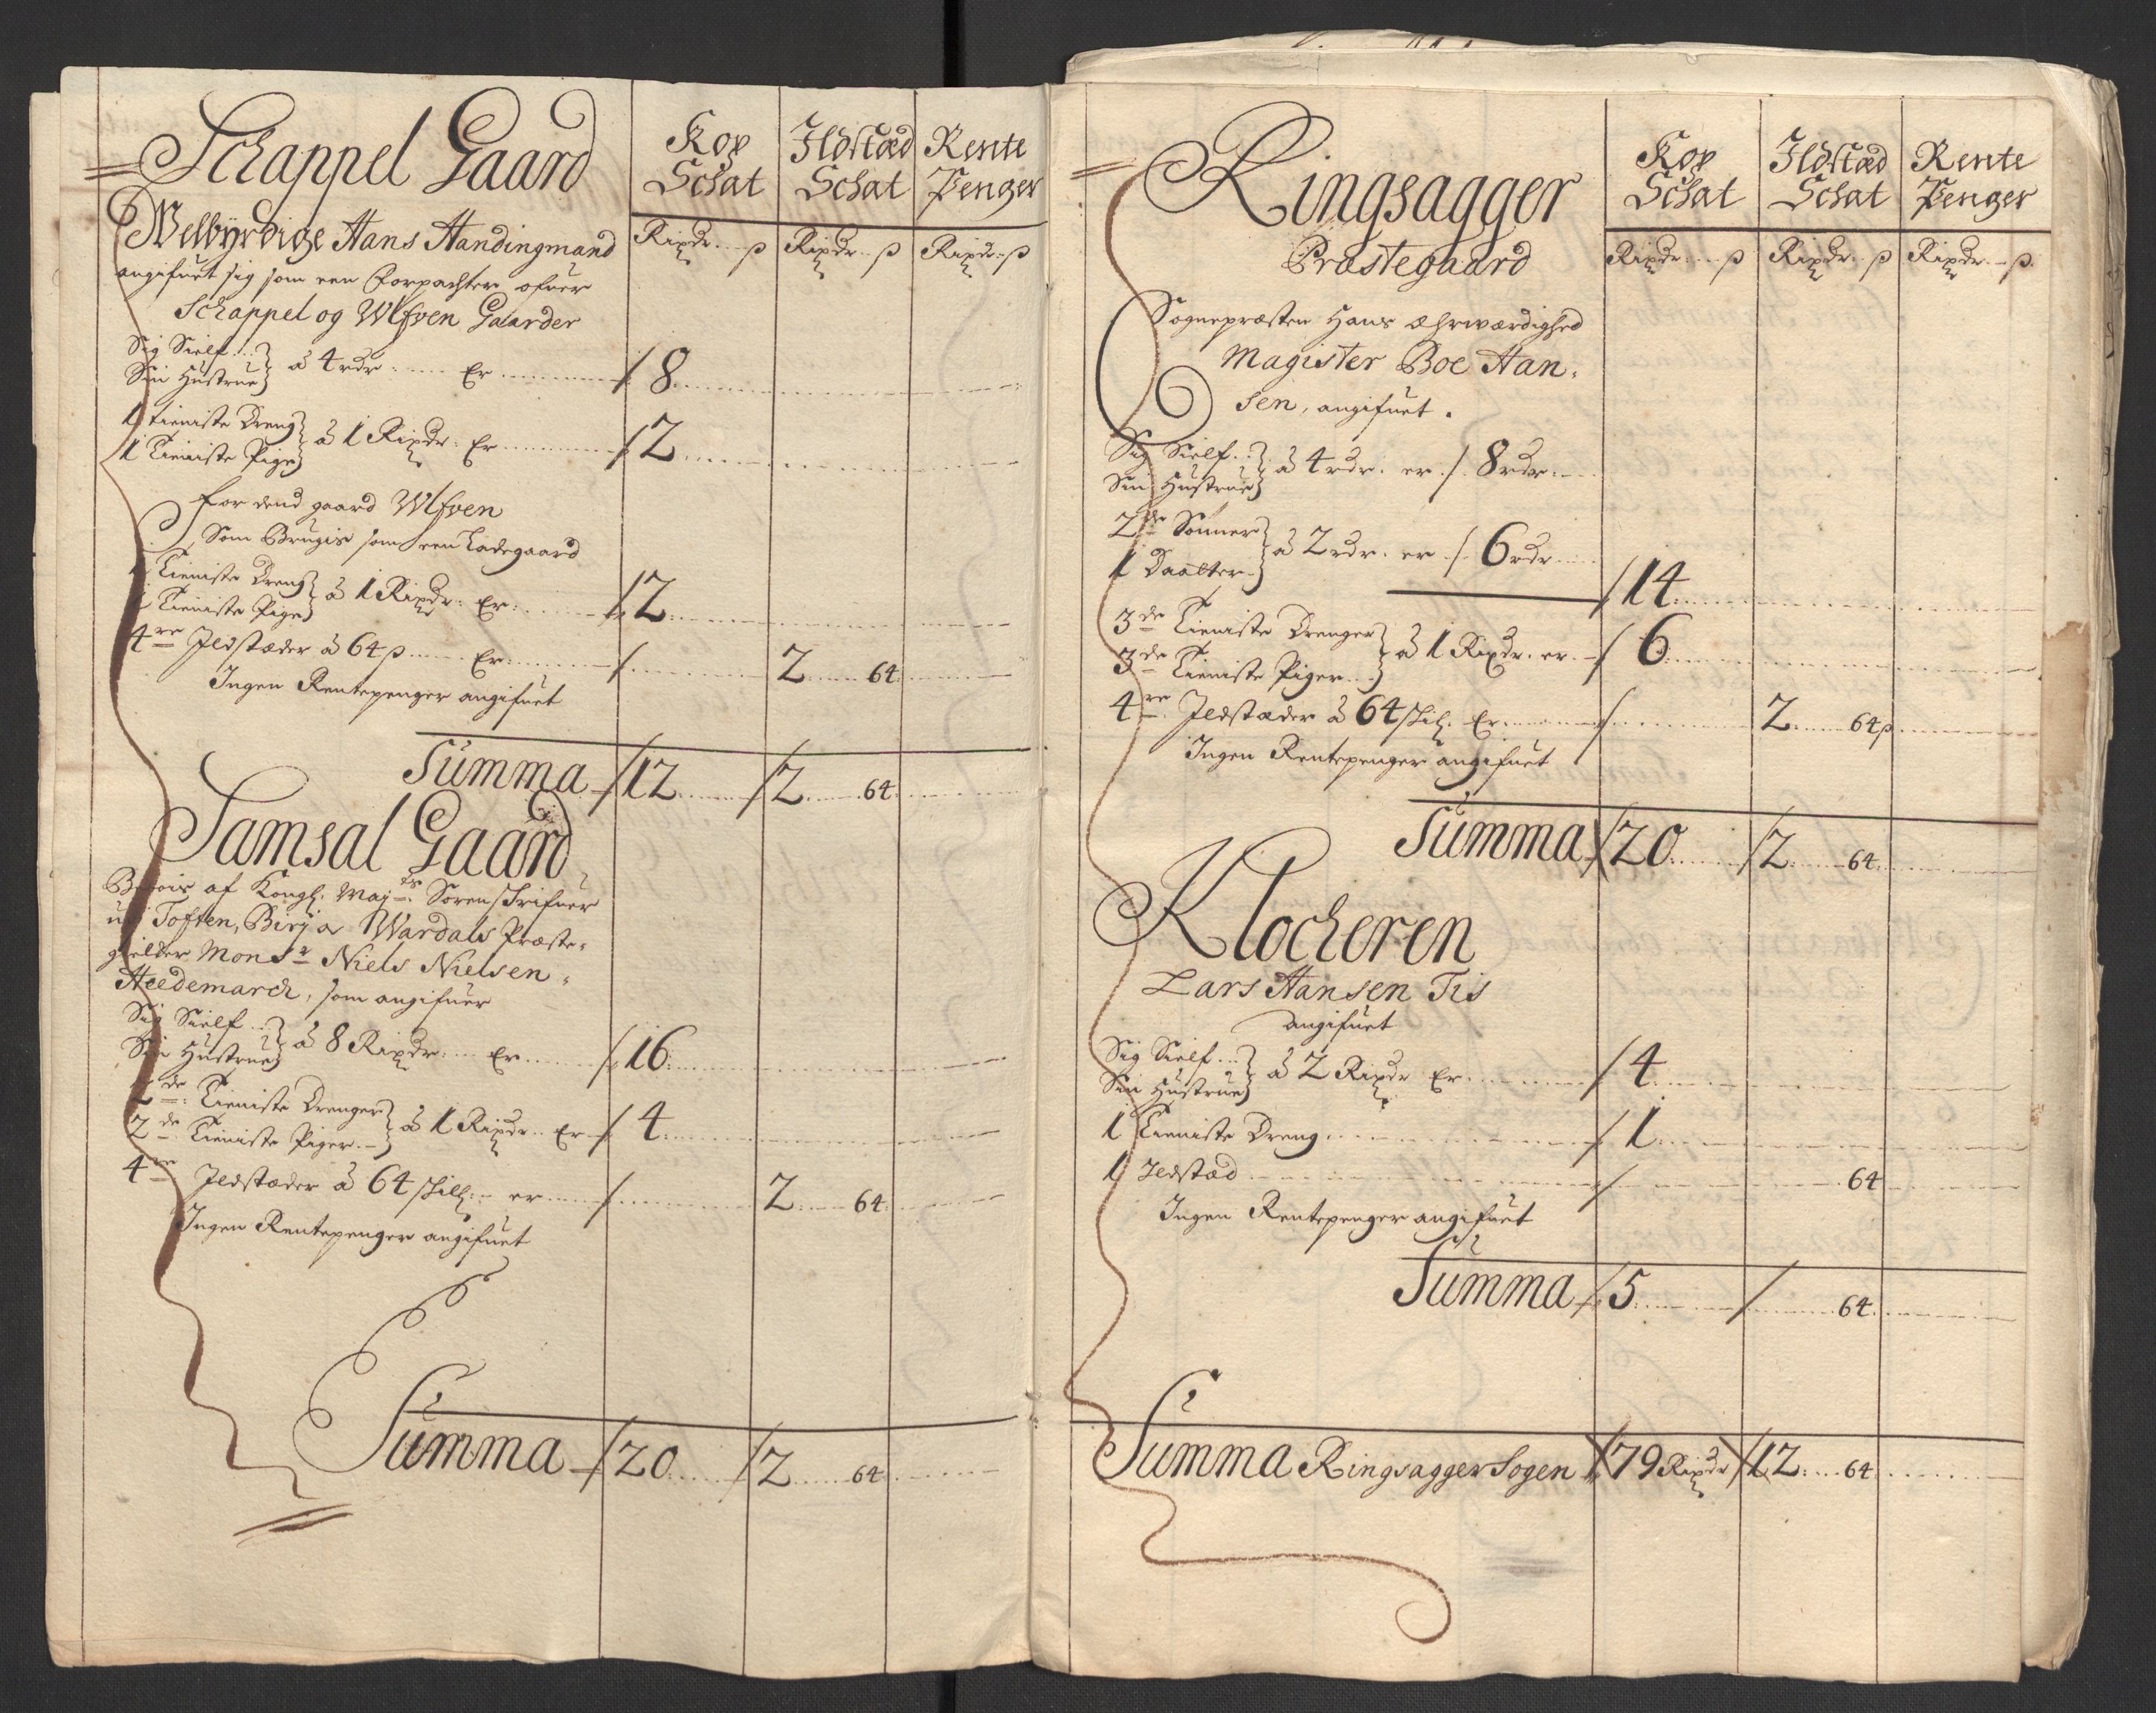 Schappel Gaard
Kop Schat
Ildstæd Schat
Rente Penger
Rixdr. ß Rixdr. ß Rixdr. ß
Welbyrdige Hans Handingmand
angifuet sig som een Forpachter ofuer
Schappel og Ulfven Gaarder
Sig Sielf
Sin Hustrue } â 4 rdr. Er 8
1 tieniste Dreng
1 Tieniste Pige } â 1 Rixdr. Er 2
for dend gaard Ulfven
Som Brugis som een Ladegaard
1 Tieniste Dreng
1 Tieniste Pige } â 1 Rixdr. Er 2
4re Ildstæder â 64 ß Er 2 64
Ingen Rentepenger angifuet
Summa 12 2 64
Samsal Gaard
Brugis af Kongl. Maj.ts Sorenskrifuer
udj Toften, Birj og Wardals Præste-
gielder Monsr Niels Nielsen
Heedemarck, som angifuer
Sig Sielf
Sin Hustrue } â 8 Rixdr. Er 16
2de Tieniste Drenger
2de Tieniste Piger } â 1 Rixdr. Er 4
4re Ildstæder â 64 skill. er 2 64
Ingen Rentepenger angifuet
Summa 20 2 64
Ringsagger
Præstegaard
Kop Schat
Ildstæd Schat
Rente Penger
Rixdr. ß Rixdr. ß Rixdr. ß
Sognepræsten Hans Ærwærdighed
Magister Boe Han-
sen, angifuet.
Sig Sielf
Sin Hustrue } â 4 rdr. er 8 rdr.
2de Sønner
1 Daatter } â 2 rdr. er 6 rdr.
14
3de Tieniste Drenger
3de Tieniste Piger } â 1 Rixdr. er 6
4re Ildstæder â 64 skil. Er 2 64 ß
Ingen Rentepenger angifuet
Summa 20 2 64
Klockeren
Lars Hansen Tis
angifuet
Sig Sielf
Sin Hustrue } â 2 Rixdr Er 4
1 Tieniste Dreng 1
1 Ildstæd 64
Ingen Rentepenger angifuet
Summa 5 64
Summa Ringsagger Sogen 79 Rixdr 12 64